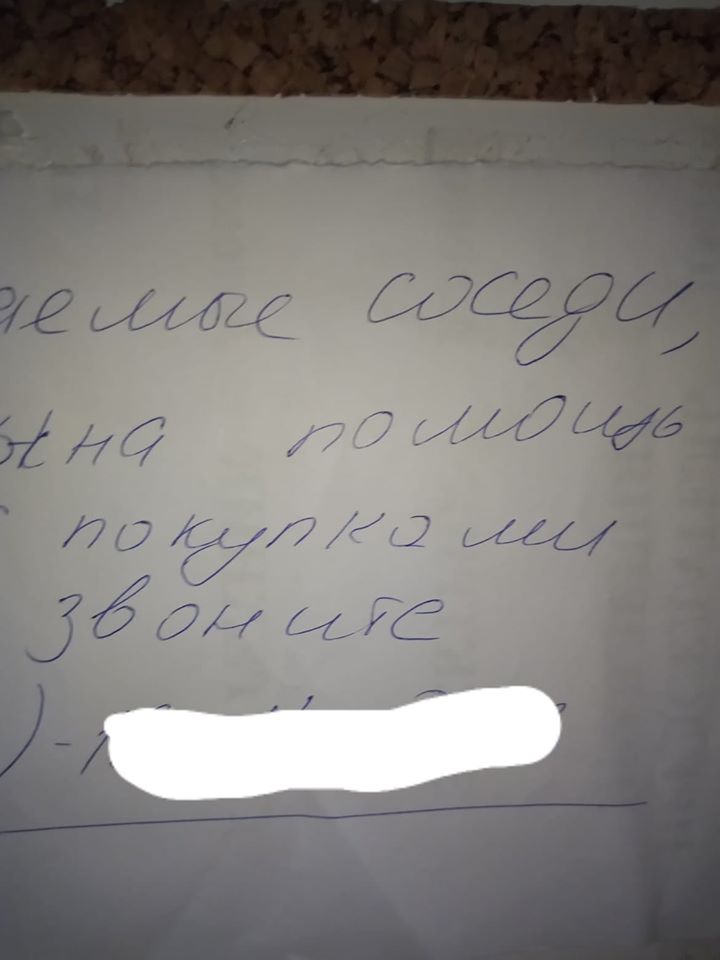 аемые соседи,
на помощь
покупками
звоните
) -